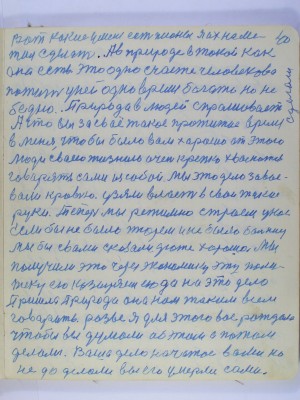 Вот какие умнее сот тионы я их наме- 40
тил сделать. А в природе в такой как
она есть это одно счастье человеково
потому у ней одно время богато но не
бедно. Природа в людей спрашивает
А что вы за своё такое прожитое время
в меня, чтобы было вам хорошо от этого
Люди своею жизнью очень крепко хвалятся
говорят сами из собой. Мы это дело завое-
вали кровью. взяли власть в свои такие
руки. Теперь мы решимо строем у нас
если бы не было этого и не было бы ему
мы бы сами сказали даже хорошо. Мы
получили это через экономику эту поли-
тику его кушали сюда на это дело
Пришла Природа она нам таким всем
говорить. разве я для этого вас рождала
чтобы вы думали об этом а потом
делали. Ваше дело начатое вами но
не до делали вы его умерли сами.
сделали